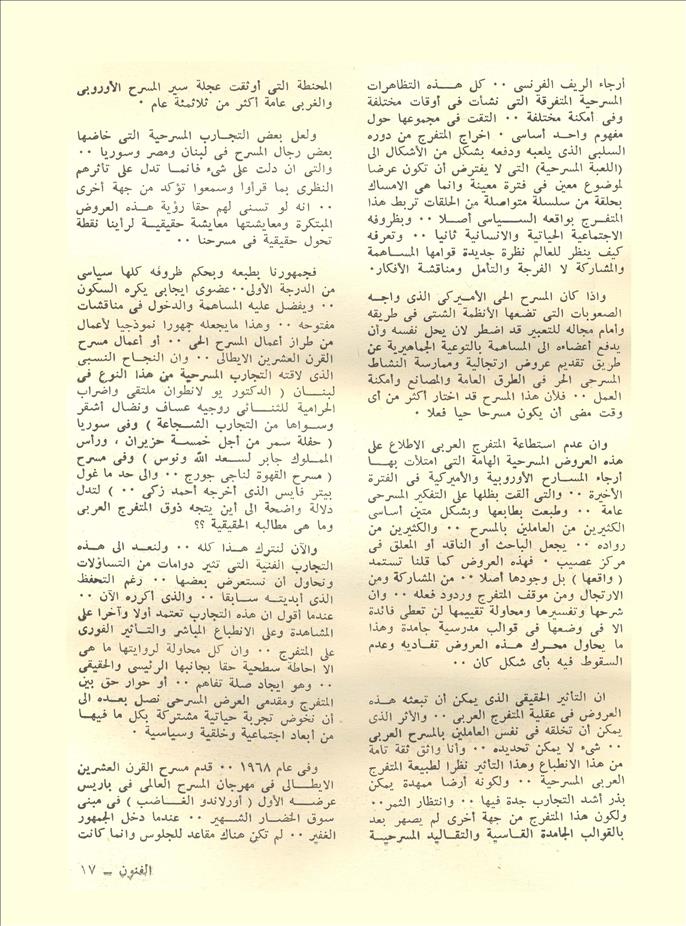 أرجاء الريف الفرنسى ٠٠ كل هــذه التظاهرات
المسرحية المتفرقة التى نشأت فى أوقات مختلفة
وفى أمكنة مختلفة ٠٠ التقت فى مجموعها حول
مفهوم واحـد أساسى ٠ اخراج المتفرج من دوره
السلبى الذى يلعبه ودفعه بشكل من الأشكال الى
(اللعبة المسرحية) التى لا يفترض أن تكون عرضا
لموضوع معين فى فترة معينة وانما هى الامساك
بحلقة من سلسلة متواصلة من الحلقات تربط هذا
المتفـرج بواقعه الســـياسى أصـلا ٠٠ وبظروفه
الاجتماعية الحياتية والانسانية ثانيا ٠٠ وتعرفه
كيف ينظر للعالم نظرة جديدة قوامها المســاهمة
والمشاركة لا الفرجة والتأمل ومناقشة الأفكار٠
واذا كان المسرح الحى الأميركى الذى واجـه
الصعوبات التى تضعها الأنظمة الشتى فى طريقه
وأمام مجاله للتعبير قد اضطر لان يحل نفسه وأن
يدفع أعضاءه الى المساهمة بالتوعية الجماهيرية عن
طريق تقديم عروض ارتجالية وممارسة النشاط
المسرحى الحر فى الطرق العامة والمصانع وأمكنة
العمل ٠٠ فلأن هذا المسرح قد اختار أكثر من أى
وقت مضى أن يكون مسرحا حيا فعلا ٠
وان عدم استطاعة المتفرج العربى الاطلاع على
هذه العروض المسرحية الهامة التى امتلأت بهـــا
أرجاء المســارح الأوروبية والأميركية فى الفترة
الأخيرة ٠٠ والتى ألقت بظلها على التفكير المسرحى
عامة ٠٠ وطبعت بطابعها وبشكل متين أساسى
الكثيرين من العاملين بالمسرح ٠٠ والكثيرين من
رواده ٠٠ يجعل الباحث أو الناقد أو المعلق فى
مركز عصيب ٠ فهذه العروض كما قلنا تستمد
( واقعها ) بل وجودها أصلا ٠٠ من المشاركة ومن
الارتجال ومن موقف المتفرج وردود فعله ٠٠ وان
شرحها وتفسيرها ومحاولة تقييمها لن تعطى فائدة
الا فى وضعها فى قوالب مدرسية جامدة وهذا
ما يحاول محـرك هــذه العروض تفـاديه وعدم
السقوط فيه بأى شكل كان ٠٠
ان التأثير الحقيقى الذى يمكن أن تبعثه هــذه
العروض فى عقلية المتفرج العربى ٠٠ والأثر الذى
يمكن أن تخلقه فى نفس العاملين بالمسرح العربى
٠٠ شىء لا يمكن تحديده ٠٠ وأنا واثق ثقة تامة
من هذا الانطباع وهذا التأثير نظرا لطبيعة المتفرج
العربى المسرحية ٠٠ ولكونه أرضا ممهدة يمكن
بذر أشد التجارب جدة فيها ٠٠ وانتظار الثمر٠٠
ولكون هذا المتفرج من جهة أخرى لم يصهر بعد
بالقوالب الجامدة القــاسية والتقـاليد المسرحيــة
المحنطة التى أوثقت عجلة سير المسرح الأوروبى
والغربى عامة أكثر من ثلاثمئة عام ٠
ولعل بعض التجـارب المسرحية التى خاضها
بعض رجال المسرح فى لبنان ومصر وسوريا ٠٠
والتى ان دلت على شىء فانمـا تدل على تأثرهم
النظرى بما قرأوا وسمعوا تؤكد من جهة أخرى
٠٠ انه لو تسنى لهم حقا رؤية هــذه العروض
المبتكرة ومعايشتها معايشة حقيقيــة لرأينا نقطة
تحول حقيقية فى مسرحنا ٠٠
فجمهورنا بطبعه وبحكم ظروفه كلها سياسى
من الدرجة الأولى٠٠عضوى ايجابى يكره السكون
٠٠ ويفضل عليه المساهمة والدخول فى مناقشات
مفتوحه ٠٠ وهذا مايجعله جمهورا نموذجيا لأعمال
من طراز أعمال المسرح الحى ٠٠ أو أعمال مسرح
القرن العشرين الايطالى ٠٠ وان النجاح النسبى
الذى لاقته التجارب المسرحية من هذا النوع فى
لبنــان ( الدكتور يو لانطوان ملتقى واضراب
الحرامية للثنــائى روجيه عساف ونضال أشقر
وســواها من التجارب الشـجاعة ) وفى سوريا
( حفلة سمر من أجل خمسـة حزيران ، ورأس
المملـوك جابر لسـعد الله ونوس ) وفى مسرح
( مسرح القهوة لناجى جورج ٠٠ والى حد ما غول
بيتر فايس الذى أخرجه أحمد زكى ٠٠ ) لتدل
دلالة واضحة الى أين يتجه ذوق المتفرج العربى
وما هى مطالبه الحقيقية ؟؟
والآن لنترك هــذا كله ٠٠ ولنعـد الى هــذه
التجارب الفنية التى تثير دوامات من التساؤلات
ونحاول ان نستعرض بعضها ٠٠ رغم التحفظ
الذى أبديتـه سـابقا ٠٠ والذى أكرره الآن ٠٠
عندما أقول ان هذه التجارب تعتمد أولا وآخرا على
المشاهدة وعلى الانطباع المباشر والتــأثير الفورى
على المتفرج ٠٠ وان كل محاولة لروايتها ما هى
الا احاطة سطحية حقا بجانبها الرئيسى والحقيقى
٠٠ وهو ايجاد صلة تفاهم ٠٠ أو حوار حق بين
المتفرج ومقدمى العرض المسرحى نصل بعـده الى
أن نخوض تجربة حياتية مشتركة بكل ما فيهـا
من أبعاد اجتماعية وخلقية وسياسية ٠
وفى عام ١٩٦٨ ٠٠ قدم مسرح القرن العشرين
الايطــالى فى مهرجان المسرح العالمى فى باريس
عرضــه الأول ( أورلاندو الغــاضب ) فى مبنى
سوق الخضار الشـهير ٠٠ عندما دخل الجمهور
الغفير ٠٠ لم تكن هناك مقاعد للجلوس وانما كانت
الفنون – ١٧